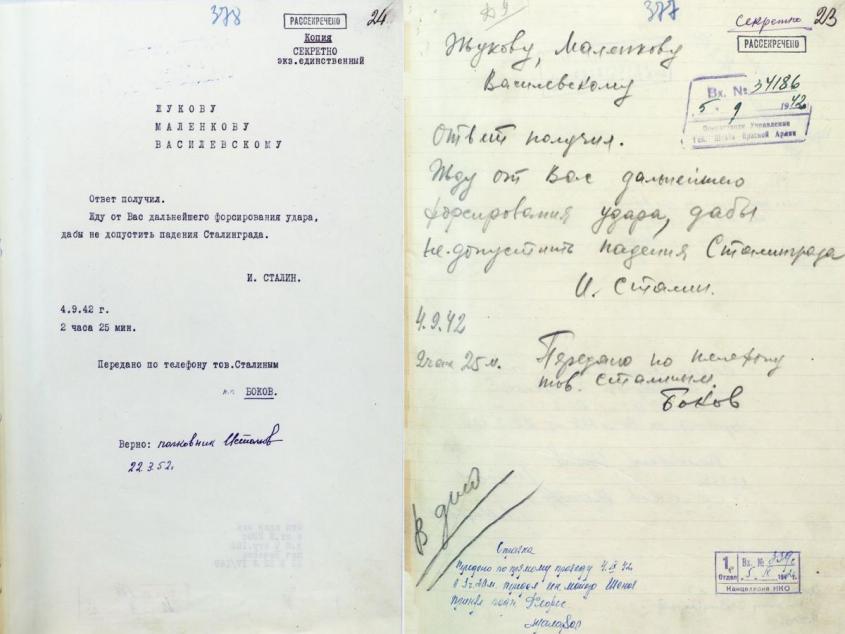 378
РАССЕКРЕЧЕНО
24
Копия
СЕКРЕТНО
экз.единственный
ЖУКОВУ
МАЛЕНКОВУ
ВАСИЛЕВСКОМУ
Ответ получил.
Жду от Вас дальнейшего форсирования удара,
дабы не допустить падения Сталинграда.
И. СТАЛИН.
4.9.42 г.
2 часа 25 мин.
Передано по телефону тов.Сталиным
п.п. БОКОВ.
Верно: полковник
22.3.52.
377
Секретно 23
РАССЕКРЕЧЕНО
Жукову, Маленкову
Василевскому
Вх. № 34186
5 9 1942
Оперативное Управление
Ген. Штаба Красной Армии
Ответ получил.
Жду от Вас дальнейшего
форсирования удара, дабы
не допустить падения Сталинграда
И. Сталин.
4.9.42
2 часа 25 м. Передано по телефону
тов. Сталиным.
Боков
В дело
Справка
по прямому проводу
1
Отдел
Вх. №
Канцелярия НКО